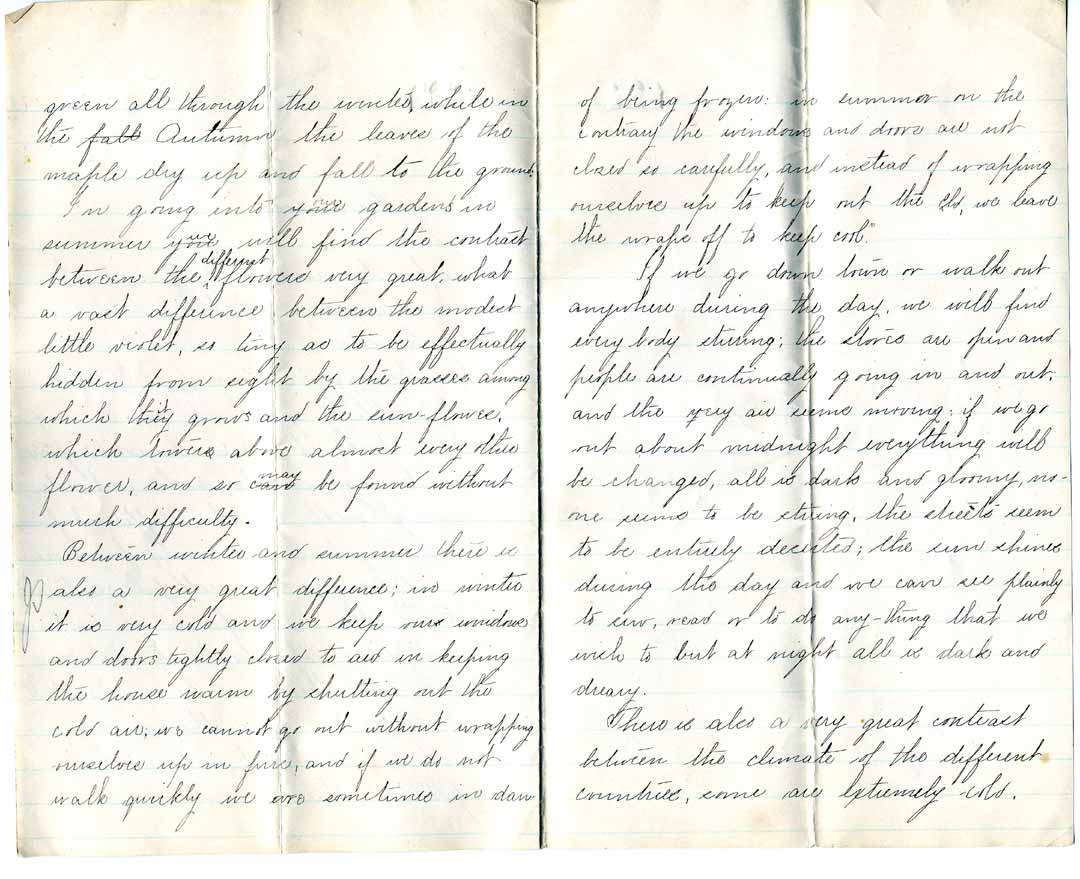 green all through the winter, while in
the fall Autumn the leaves of the
maple dry up and fall to the ground.
In going into your gardens in
summer you we will find the contrast
between the different flowers very great, what
a vast difference between the modest
little violet, so tiny as to be effectually
hidden from sight by the grasses among
which they it grows and the sun-flower,
which towers above almost every other
flower, and so can may be found without
much difficulty.
Between winter and summer there is
also a very great difference; in winter
it is very cold and we keep our windows
and doors tightly closed to aid in keeping
the house warm by shutting out the
cold air; we cannot go out without wrapping
ourselves up in furs, and if we do not
walk quickly we are sometimes in dan
of being frozen: in summer on the
contrary the windows and doors are not
closed so carefully, and instead of wrapping
ourselves up to keep out the cold, we leave
the wraps off to keep cool."
If we go down town or walk out
anywhere during the day, we will find
every body stirring; the stores are open and
people are continually going in and out,
and the very air seems moving; if we go
out about midnight everything will
be changed, all is dark and gloomy, no-
one seems to be stiring, the streets seem
to be entirely deserted; the sun shines
during the day and we can see plainly
to sew, read or to do any-thing that we
wish to but at night all is dark and
dreary.
There is also a very great contrast
between the climate of the different
countries, some are extremely cold,